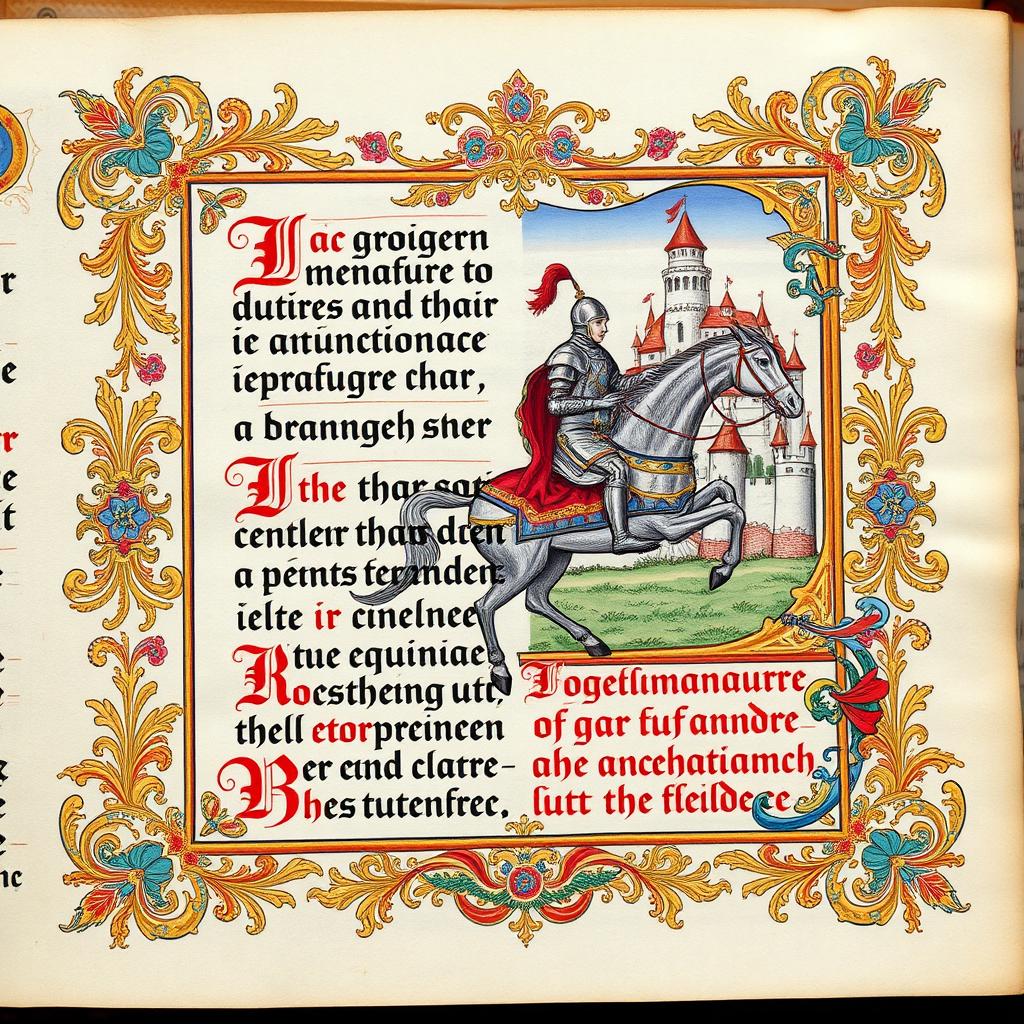 Iac groigern
menafure to
dutires and thair
ie antunctionace
ieprafugre char,
a branngeh sher
I the thar
centlerr than dren
a péints
ielte ir cinelnee
R tue equiniae
oesthetng utt,
thell etorpreincen
B er eind clatre-
hes tutenfrec,
Iogetlimanaurre
of gar fufanndre
ahe ancehatiamch
futt the fleildece